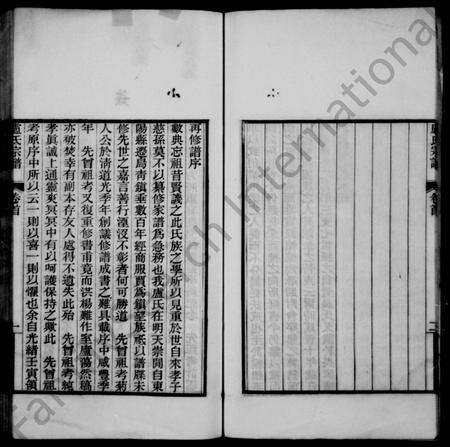 再修譜序
數典忘祖昔賢譏之此氏族之學所以見重於世自來孝子
慈孫莫不以纂修家譜為急務也我盧氏在明天崇間自東
陽縣遷烏青鎮垂數百年經商服賈為鎮望族祗以譜牒未
修先世之嘉言善行湮沒不彰者何可勝道 先曾祖考菊
人公於清道光季年創議修譜成書之難具載序中咸豐季
年 先曾祖考又復重修書甫竟而洪楊難作室廬蕩然稿
亦被焚幸有副本存友人處得不遺失此殆 先曾祖考純
孝眞誠上通靈爽冥冥中有以呵護保持之歟此 先曾祖
考原序中所以云一則以喜一則以懼也余自光緒壬寅領
盧氏宗譜
卷首
一
盧氏宗譜
卷首
二
Research International